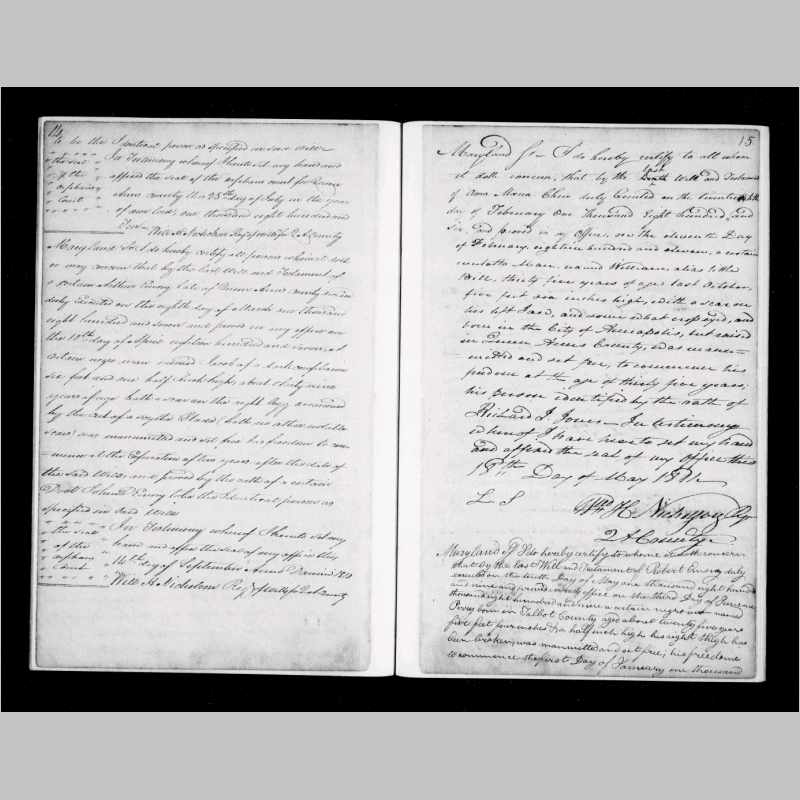 14
to be the Identical person as specified in said will
In Testimony whereof I hereto set my hand and
the seat
affixed the seal of the orphans court for Queen
of the
Anns county this 25th day of July in the year
orphans
of our Lord, one thousand eight hundred and
Court
Will H Nicholson Reg of wills for Q A County
Maryland Sct I do hereby certify all persons whom it doth
or may concern that by the last will and Testament of
a certain Arthur Emory, of late of Queen Anns county
duly Executed on the eighth day of March one thousand
eight hundred and seven and proved in my office on
the 10th day of April eighteen hundred and seven, a
certain negro man named Jacob of a dark complexion
six feet and one half Inch high, about thirty nine
years of age hath a scar on the right leg occasioned
by the cut of a scythe Blade (hath no other notable
scars) was manumitted and set free his freedom to com=
=mence at the Expiration of two years after the date of
the said Will and proved by the oath of a certain
to be the Identical person as
specified in said Will
In Testimony whereof I hereto set my
the seal
hand and affix the seal of my office this
of the
14th day of September Anno Domini 1810
orphans
Court
Will H Nicholson Reg of wills for Q A County
15
Maryland Sc I do hereby certify to all whom
it doth concern, that by the last Will and Testament
of Anna Maria Chew duly Executed on the twenty eighth
day of February One Thousand Eight Hundred, and
Six, and proved in my Office, on the eleventh Day
of February eighteen hundred and eleven, a certain
mulatto Man, named William, alias Little
Will, thirty five years of age last October,
five feet six inches high, with a scar on
his left Face, and somewhat cross eyed, and
born in the City of Annapolis, but raised
in Queen Anns County, was manu=
=mitted and set free, to commence his
freedom at the age of thirty five years,
his person identified by the oath of
Richard I Jones — In testimony
whereof I have hereto set my hand
and affixed the seal of my Office this
18th Day of May 1811
L S
Wm H Nicholson Reg
Q A County
Maryland Sct I do hereby certify to whom it doth concern
that by the last Will and Testament of Robert Emory duly
executed on the tenth Day of May one thousand eight hundred
and nine and proved in my office on the third Day of June one
thousand eight hundred and nine a certain negro man named
Perry born in Talbot County aged about twenty five years
five feet four inches & a half inch high his right thigh has
been broken, was manumitted and set free; his freedom
to commence the first Day of January one thousand